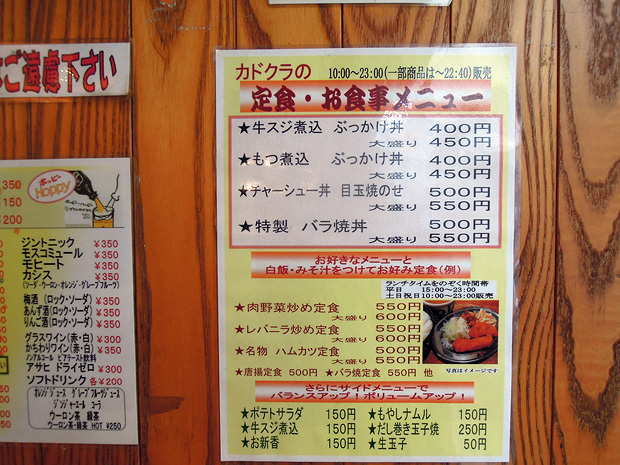 はご遠慮下さい
ホッピー
Hoppy
350
150
200
ジントニック ¥350
モスコミュール ¥350
モヒート ¥350
カシス ¥350
(ソーダ・ウーロン・オレンジ・グレープフルーツ)
梅酒 (ロック・ソーダ) ¥350
あんず酒(ロック・ソーダ) ¥350
りんご酒(ロック・ソーダ) ¥350
グラスワイン(赤・白) ¥300
かちわりワイン(赤・白) ¥350
ノンアルコール ビアテースト飲料
アサヒ ドライゼロ ¥300
ソフトドリンク 各¥200
オレンジジュース グレープフルーツジュース
ジンジャーエール コーラ
ウーロン茶 緑茶
ウーロン茶・緑茶 HOT ¥250
カドクラの 10:00〜23:00(一部商品は〜22:40)販売
定食・お食事メニュー
★牛スジ煮込 ぶっかけ丼 400円
大盛り 450円
★もつ煮込 ぶっかけ丼 400円
大盛り 450円
★チャーシュー丼 目玉焼のせ 500円
大盛り 550円
★特製 バラ焼丼 500円
大盛り 550円
お好きなメニューと
白飯・みそ汁をつけてお好み定食(例)
ランチタイムをのぞく時間帯
平日 15:00〜23:00
土日祝日10:00〜23:00販売
★肉野菜炒め定食 550円
大盛り 600円
★レバニラ炒め定食 550円
大盛り 600円
★名物 ハムカツ定食 500円
大盛り 550円
★唐揚定食 500円 ★バラ焼定食 550円 他
写真はイメージです
さらにサイドメニューで
バランスアップ!ボリュームアップ!
★ポテトサラダ 150円 ★もやしナムル 150円
★牛スジ煮込 150円 ★だし巻き玉子焼 250円
★お新香 150円 ★生玉子 50円